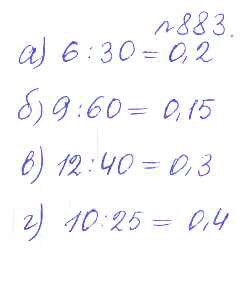 №883.
а) 6:30=0,2
б) 9:60= 0,15
в) 12:40=0,3
г) 10:25= 0,4